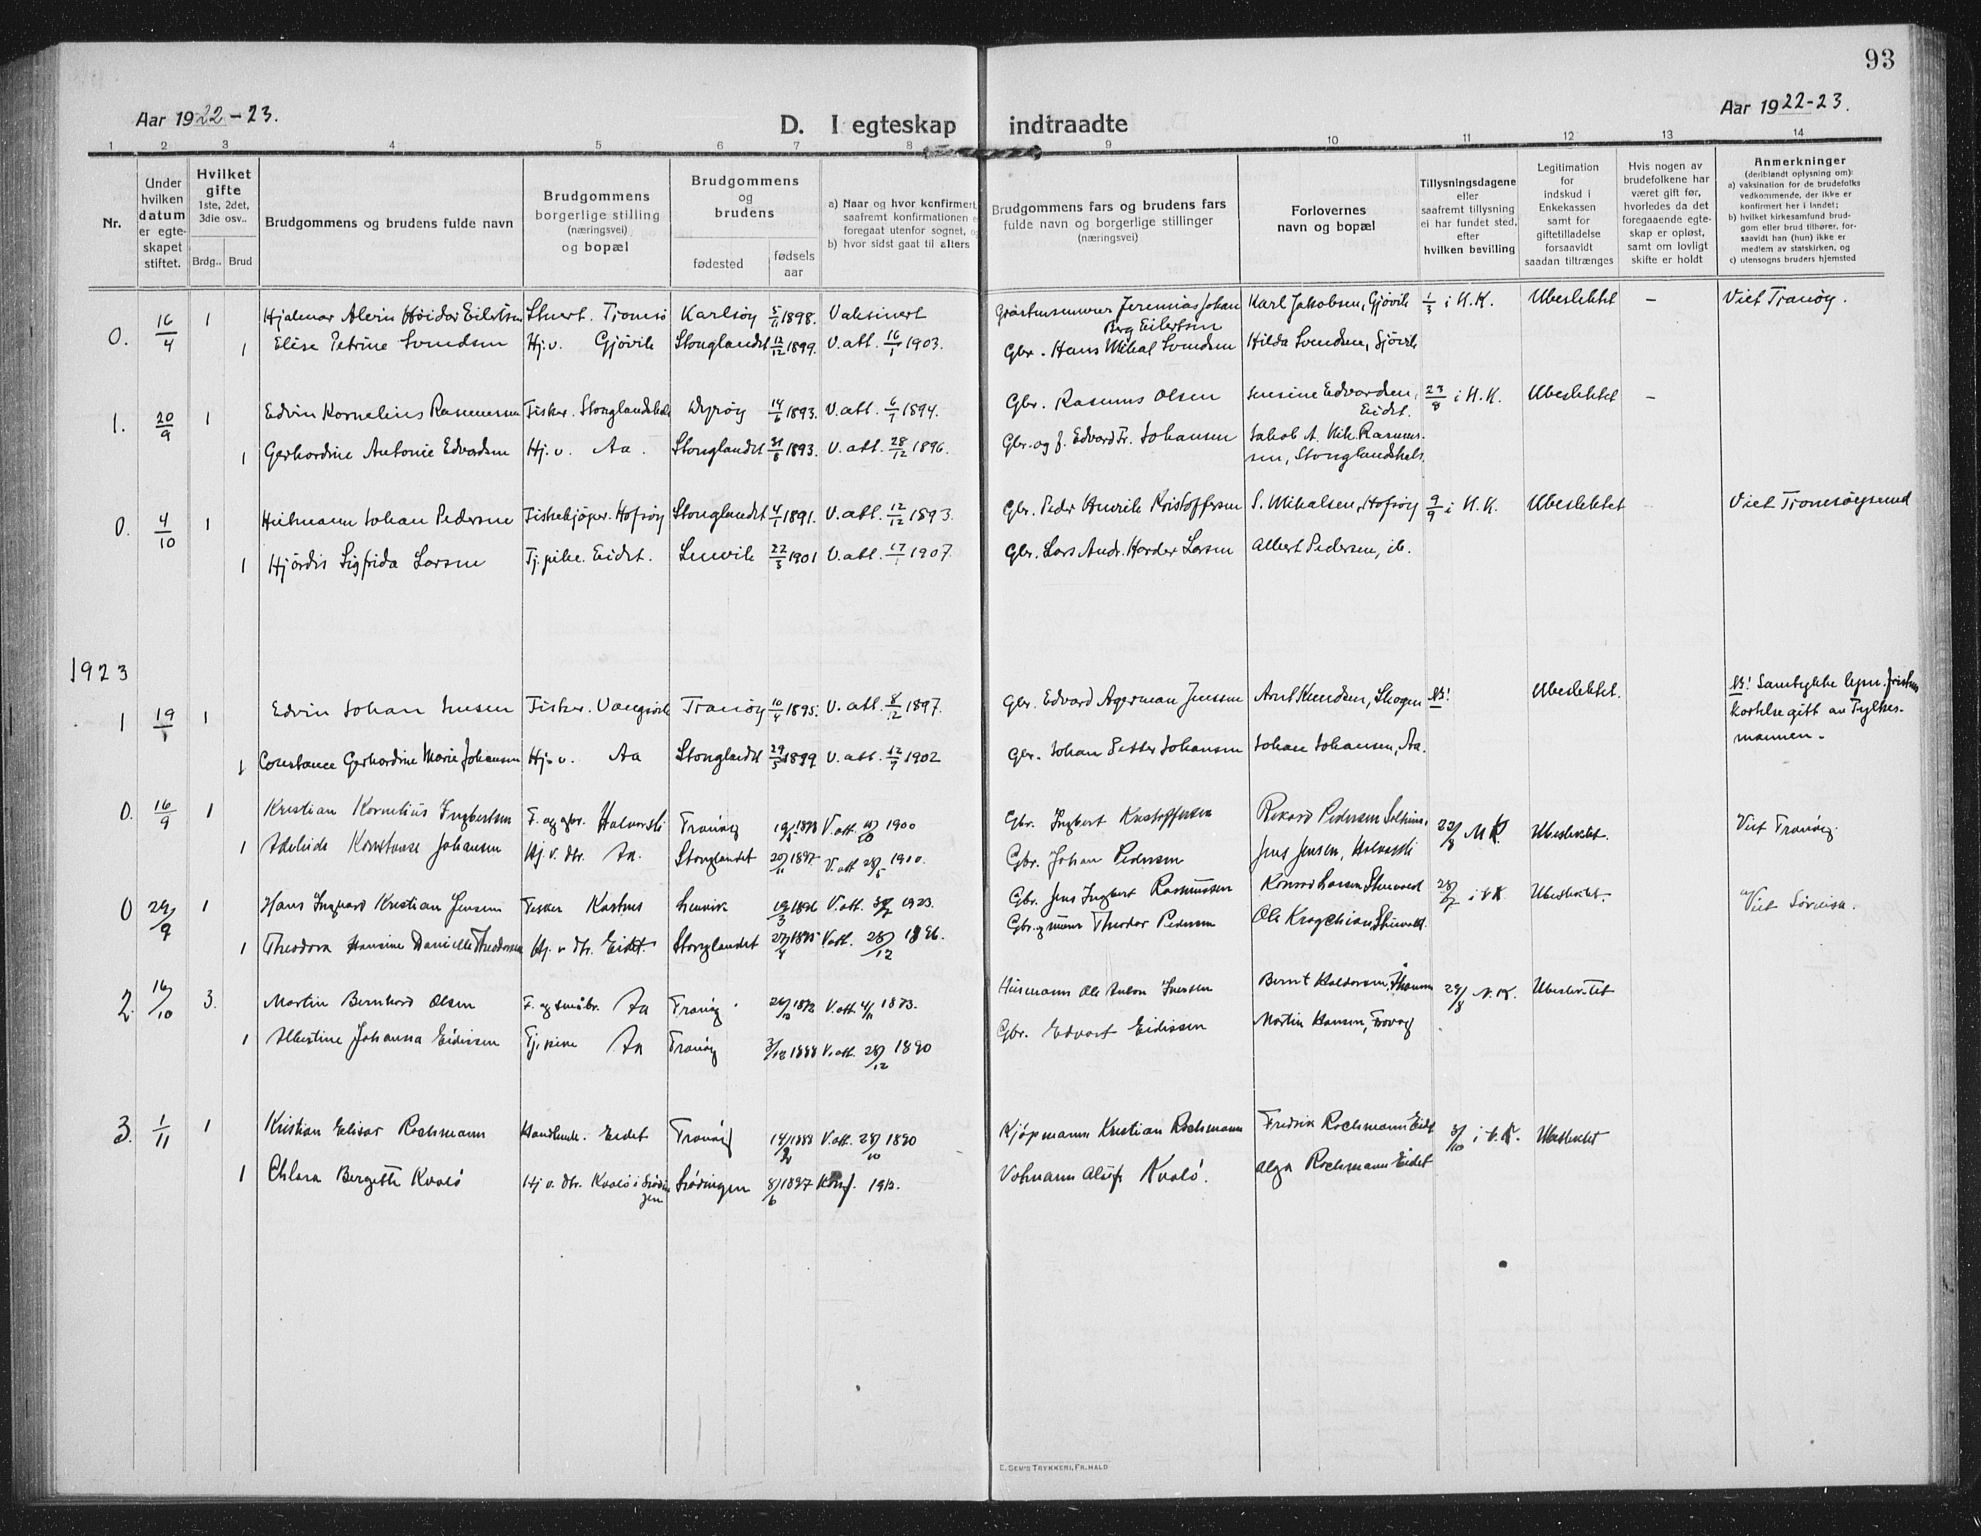 93
Aar 1922-23.
D. I egteskap indtraadte
Aar 1922-23.
1 2 3 4 5 6 7 8 9 10 11 12 13 14
Nr.
Under hvilken datum er egteskapet stiftet.
Hvilket gifte 1ste, 2det, 3die osv..
Brdg.. Brud
Brudgommens og brudens fulde navn
Brudgommens borgerlige stilling (næringsvei) og bopæl
Brudgommens og brudens
fødested
fødselsaar
a) Naar og hvor konfirmert, saafremt konfirmationen foregaat utenfor sognet,
b) hvor sidst gaat til alters
Brudgommens fars og brudens fars fulde navn og borgerlige stillinger (næringsvei)
Forlovernes navn og bopæl
Tillysningsdagene eller saafremt tillysning ei har fundet sted, efter hvilken bevilling
Legitimation for indskud i Enkekassen samt for giftetilladelse forsaavidt saadan tiltrænges
Hvis nogen av brudefolkene har været gift før, hvorledes da det foregaaende egteskap er opløst, samt om lovligt skifte er holdt
Anmerkninger (deriblandt oplysning om):
a) vaksination for de brudefolks vedkommende, der ikke er konfirmert her i landet;
b) hvilket kirkesamfund brudgom eller brud tilhører, forsaavidt han (hun) ikke er medlem av statskirken, og
c) utensogns bruders hjemsted
0. 16/4 1 Hjalmar Alvin Høidar Eilertsen Stuert. Tromsø Karlsøy 5/11 1898. Vaksinert Jeremias Johan Berg Eilertsen Karl Jakobsen, Gjøvik 1/3 i K.K. Ubeslektet — Viet Tranøy.
1 Elise Petrine Svendsen Hj.v. Gjøvik Stonglandet 12/12 1899. V.att. 16/1 1903. Gbr. Hans Mikal Svendsen Hilda Svendsen, Gjøvik
1. 20/9 1 Edvin Kornelius Rasmussen Fisker. Stonglandseidet Dyrøy 14/6 1893. V.att. 6/7 1894. Gbr. Rasmus Olsen Jensine Edvardsen, Eidet. 23/8 i H.K. Ubeslektet —
1 Gerhardine Antonie Edvardsen Hj.v. Aa. Stonglandet 31/8 1893. V.att. 28/12 1896. Gbr. og f. Edvard Fr. Johansen Jakob A. Nik. Rasmussen, Stonglandshals.
0. 4/10 1 Hilmann Johan Pedersen Fiskekjøper. Hofsøy Stonglandet 4/1 1891. V.att. 12/12 1893. Gbr. Peder Henrik Kristoffersen S. Mikalsen, Hofsøy 9/9 i K.K. Ubeslektet Viet Tromsøysund
1 Hjördis Sigfrida Larsen Tj.pike. Eidet. Lenvik 22/3 1901 V.att. 17/1 1907. Gbr. Lars Andr. Harder Larsen Albert Pedersen, ib.
1923
1 19/1 1 Edvin Johan Jensen Fisker. Vangsvik Tranøy 10/4 1895. V.att. 8/12 1897. Gbr. Edvard Agerman Jenssen Arnt Knudsen, Skogen N! Ubeslektet. N! Samtykke lysn. fristens kortelse gitt av Fylkesmannen.
1 Constance Gerhardine Marie Johansen Hj.v. Aa Stonglandet 29/5 1899 V.att. 12/7 1902 Gbr. Johan Petter Johansen Johan Johansen, Aa.
0. 16/9 1 Kristian Kornelius Ingbertsen F. og gbr. Tranøy V.att. 1900 Gbr. Ingbert Kristoffersen Rikard Pedersen 22/8 Ubeslektet. Viet Tranøy.
1 Adeleide Konstanse Johansen Hj.v. dtr. Aa. Stonglandet 20/11 1897 V.att 28/5 1910. Gbr. Johan Pedersen Jens Jensen,
0 29/9 1 Hans Ingvard Kristian Jensen Fisker Kastnes Lenvik 19/3 1896 V.att. 1923. Gbr. Jens Ingbert Rasmussen Konrad Larsen 28/7 Ubeslektet. Viet Sørreisa.
1 Theodora Hansine Danielle Theodorsen Hj.v. dtr. Eidet. Stonglandet 27/4 1895 V.att. 28/12 1896. Theodor Pedersen Ole
2. 16/10 3. Martin Bernhard Olsen F. og småbr. Aa Tranøy 1872 V.att. 4/11 1873. Husmann Ole Anton Iversen Bernt Haldorsen, 29/8 Ubeslektet
1 Albertine Johanna Eidissen Tj.pike Aa Tranøy 3/12 1888 V.att. 28/12 1890 Gbr. Edvart Eidissen Martin Hansen,
3. 1/11 1 Kristian Elisar Rochmann Handlende. Eidet Tranøy 14/2 1888 V.att. 28/10 1890 Kjøpmann Kristian Rochmann Fredrik Rochmann Eidet 3/10 Ubeslektet
1 Chlara Bergitte Kvalø Hj.v. dtr. Kvalø i Lødingen Lødingen 8/6 1897 Konf. 1912. Kvalø. Olga Rochmann Eidet
E. SEM'S TRYKKERI, FR.HALD